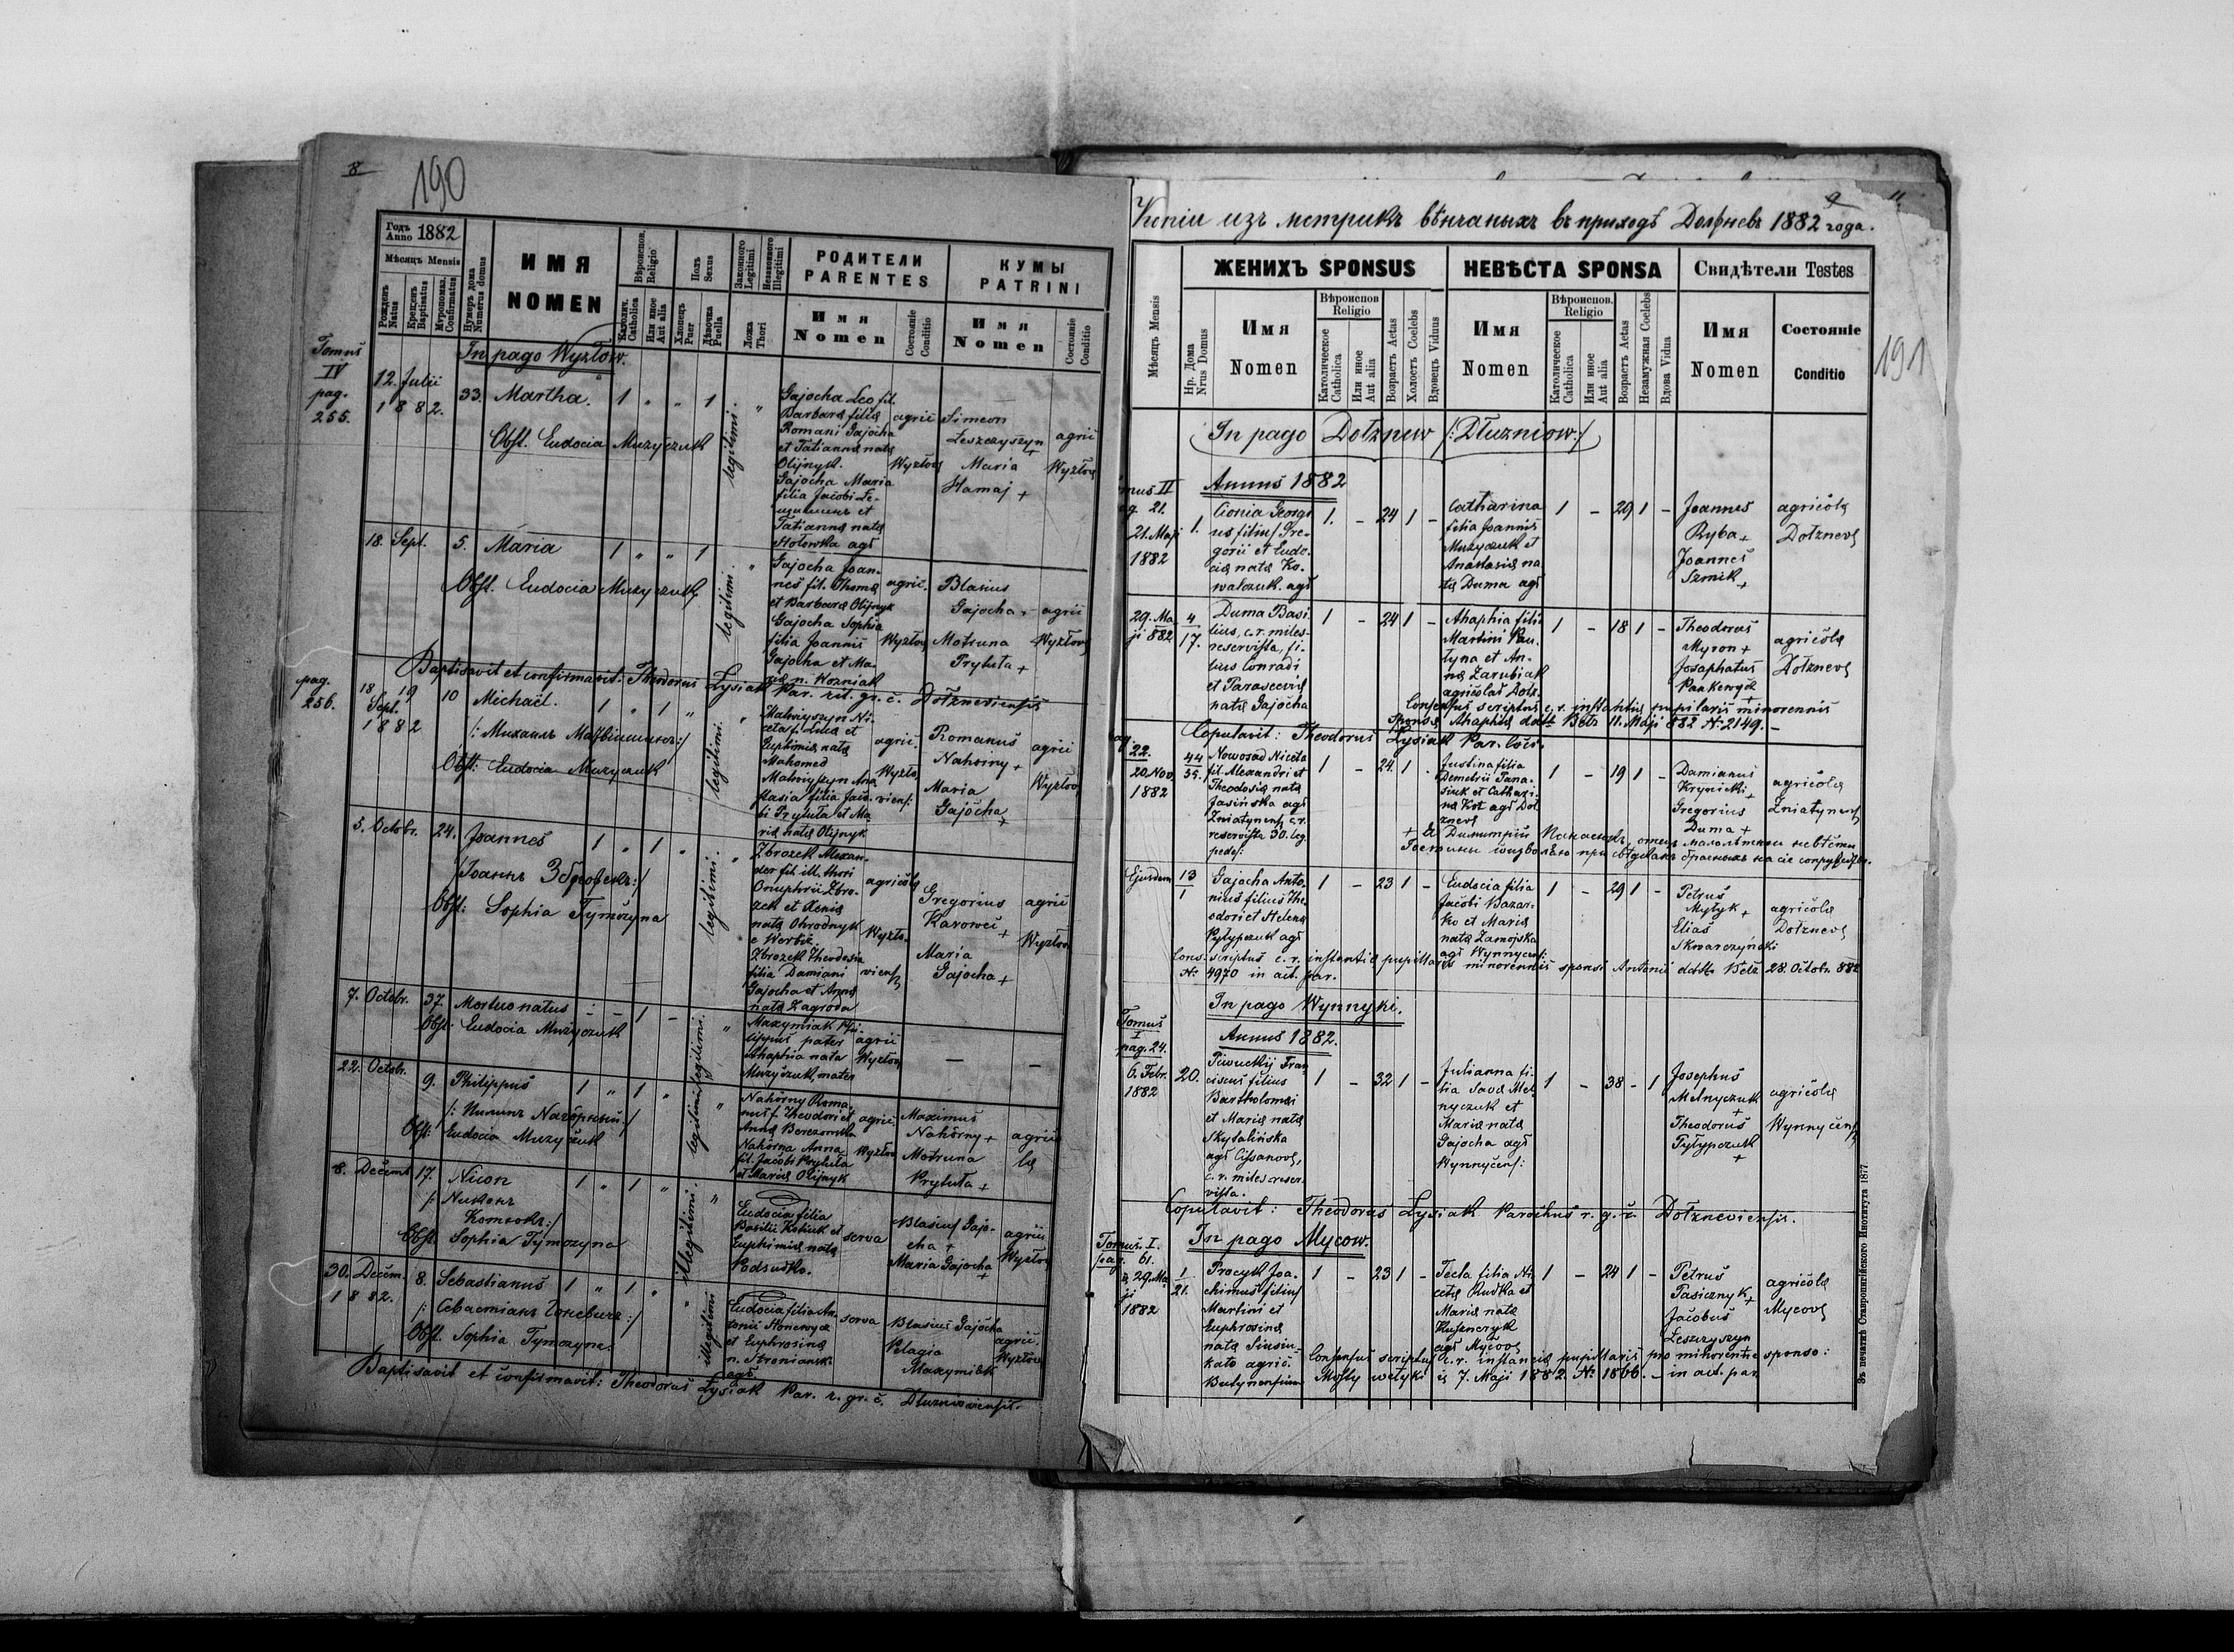 8
190
Годъ Anno 1882
Мѣсяцъ Mensis
Рожденъ Natus
Крещенъ Baptisatus
Мѵропомаз. Confirmatus
Нумеръ дома Numerus domus
ИМЯ
NOMEN
Вѣроисповѣ. Religio
Католич. Catholica
Или иное Aut alia
Полъ Sexus
Хлопецъ Puer
Дѣвочка Puella
Законного Legitimi
Незаконного Illegitimi
Ложа Thori
РОДИТЕЛИ
PARENTES
Имя
Nomen
Состояніе Conditio
КУМЫ
PATRINI
Имя
Nomen
Состояніе Conditio
Tomus
IV
pag.
255.
In pago Wyżłów.
12. Julii
1882.
33.
Martha.
1 " " 1
legitimi.
Obst. Eudocia Muzyczuk
Gajocha Leo fil.
Barbara filia
Romani Gajocha
et Tatianna nata
Olijnyk.
Gajocha Maria
filia Jacobi Le-
щишинъ et
Tatianna nata
Hołowka agr
agric
Wyżłov
Simeon
Leszczyszyn +
Maria
Hamaj +
agric
Wyżłov
18. Sept. 5. Maria 1 " " 1
legitimi.
Obst. Eudocia Muzyczuk
Gajocha Joan-
nes fil. Thoma
et Barbara Olijnyk
Gajocha Sophia
filia Joannis
Gajocha et Ma-
ria n. Wozniak
agric.
Wyżłov
Blasius
Gajocha +
Motruna
Prytuła +
agric
Wyżłov
Baptisavit et confirmavit: Theodorus Łysiak Par. rit. gr. c. Dołżneviensis
pag.
256.
18 19
Sept.
1882
10 Michaël. 1 " 1 "
legitimi.
/: Михаилъ Матвіишинъ:/
Obst: Eudocia Muzyczuk
Matwiyszyn Ni-
ceta f. Luca et
Euphimia nata
Mahomed
Matwiyszyn Ana
stasia filia Jaco-
bi Prytuła et Ma-
ria nata Olijnyk
agric.
Wyżło
viens:
Romanus
Nahorny +
Maria
Gajocha +
agric
Wyżłov
5. Octobr. 24. Joannes 1 " 1 "
legitimi.
/: Іоаннъ Зброжекъ:/
Obst: Sophia Tymozyna
Zbrozek Alexan-
der fil. ill. thori
Onuphrii Zbro-
zek et Xenia
nata Ohrodnyk
e Werbiż.
Zbrozek Theodosia
filia Damiani
Gajocha et Anna
nata Zagroda
agricola
Wyżło-
viens
Gregorius
Karoweć +
Maria
Gajocha +
agric
Wyżłov
7. Octobr. 37. Mortuo natus - - 1 -
legitimi.
Obst. Eudocia Muzyczuk
Maxymiak Phi-
lippus pater
Ahaphia nata
Muzyczuk, mater
agric
Wyżłov
22. Octobr. 9. Philippus 1 " 1 "
legitimi
/: Пилипъ Нагорный:/
Obst: Eudocia Muzyczuk
Nahorny Roma-
nus f. Theodori et
Anna Berezowska
Nahorna Anna
fil. Jacobi Prytuła
et Maria Olijnyk
agric.
Wyżłov
Maximus
Nahorny +
Motruna
Prytuła +
agrico
la
8. Decemb 17. Nicon 1 " 1 "
illegitimi.
/: Никонъ
Obst Sophia Tymozyna
Eudocia filia
Basilii Kotiuk et
Euphimia nata
Podsudko.
serva
Blasius Gajo-
cha +
Maria Gajocha +
agric
Wyżłov
30. Decem.
1882.
8. Sebastianus 1 " 1 "
illegitimi
/: Севастіанъ Гоневичъ:/
Obst Sophia Tymozyna.
Eudocia filia An-
tonii Honewycz
et Euphrosina
agr.
serva
Blasius Gajocha
Pelagia
Maxymiak
agric.
Wyżłov
Baptisavit et confirmavit: Theodorus Łysiak Par. r. gr. c. Dłużnioviensis.
9
11
191
Копія изъ метрикъ вѣнчаныхъ въ приходѣ Должневъ 1882 года.
Мѣсяцъ Mensis
Нр. Дома Nrus Domus
ЖЕНИХЪ SPONSUS
Имя
Nomen
Вѣроисповъ Religio
Католическое Catholica
Или иное Aut alia
Возрастъ Aetas
Холостъ Coelebs
Вдовецъ Viduus
НЕВѢСТА SPONSA
Имя
Nomen
Вѣроисповъ. Religio
Католическое Catholica
Или иное Aut alia
Возрастъ Aetas
Незамужная Coelebs
Вдова Vidua
Свидѣтели Testes
Имя
Nomen
Состояніе
Conditio
In pago Dołżnew /:Dłużniow:/
Annus 1882
mus II
ag. 21.
21. Maji
1882
1.
Cionia Georgi
us filius Gre-
gorii et Eudo-
cia nata Ko-
walczuk. agr
1. - 24 1 -
Catharina
filia Joannis
Muzyczuk et
Anastasia na-
ta Duma agr
1 - 29 1 -
Joannes
Ryba +
Joannes
Szmik +
agricola
Dołżnev
29. Ma-
ji 882
4
17.
Duma Basi
lius, c. r. miles-
reservista, fi-
lius Conradi
et Parascevia
nata Gajocha
1 - 24 1 -
Ahaphia filia
Martini Pau-
tyna et An-
na Zarubiak
agricolar Dołż.
1 - 18 1 -
Theodorus
Myron +
Josaphatus
Pankewycz +
agricola
Dołżnev
Consensus scriptus c. r. instantia pupilaris minorennis
Sponsa Ahaphia ddtt. Bełz 11. Maji 882 N: 2149. -
Copulavit: Theodorus Łysiak Par. loci.
ag.
22.
20. Nov.
1882
44
35.
Nowosad Niceta
fil. Alexandri et
Theodosia nata
Jasińska agr
Zniatynens, c. r.
reservista 30. leg.
pedes:
1 - 24. 1 -
Justina filia
Demetrii Pana-
siuk et Cathari-
na Kot agr Doł
znev
1 - 19 1 -
Damianus
Krynicki +
Gregorius
Duma +
agricola
Zniatynens
Ejusdem 13
1
Gajocha Anto-
nius filius The-
odori et Helena
Pyłypczuk agr
1 - 23 1 -
Eudocia filia
Jacobi Bazar-
ko et Maria
nata Zamojska
agr Wynnycens:
1 - 29 1 -
Petrus
Mytyk +
Elias
Skwarczyński
agricola
Dołżnev
Cons. scriptus c. r. instantia pupillaris minorennis sponsi Antonii ddtt. Bełz 28. Octobr. 882
N: 4970 in act. par.
In pago Wynnyki.
Annus 1882.
Tomus
I
pag. 24.
6. Febr.
1882
20.
Piwuckij Fran
ciscus filius
Bartholomæi
et Maria nata
Skytalińska
agr Cissanov,
c. r. miles reser-
vista.
1 - 32 1 -
Julianna fi-
lia Sava Mel-
nyczuk et
Maria nata
Gajocha agr
Wynnycens:
1 - 38 - 1
Josephus
Melnyczuk +
Theodorus
Pyłypczuk +
agricola
Wynnycens
Copulavit: Theodorus Łysiak Parochus r. g. c. Dołżneviensis.
In pago Mycow.
Tomus. I.
pag. 61.
29. Ma-
ji
1882
1
21.
Procyk Joa-
chimus filius
Martini et
Euphrosina
nata Siusiu-
kało agric.
Butynensium
1 - 23 1 -
Tecla filia Ni
ceta Rudka et
Maria nata
Kusznceryk
agr Mycov
1 - 24 1 -
Petrus
Pasicznyk +
Jacobus
Leszczyszyn
agricola
Mycov
Consensus scriptus c. r. instancia pupillaris pro minorente sponso:
Mosty wełyki is 7. Maji 1882. No 1866. - in act. par
Зъ печатнѣ Ставропигійского Института 1877.